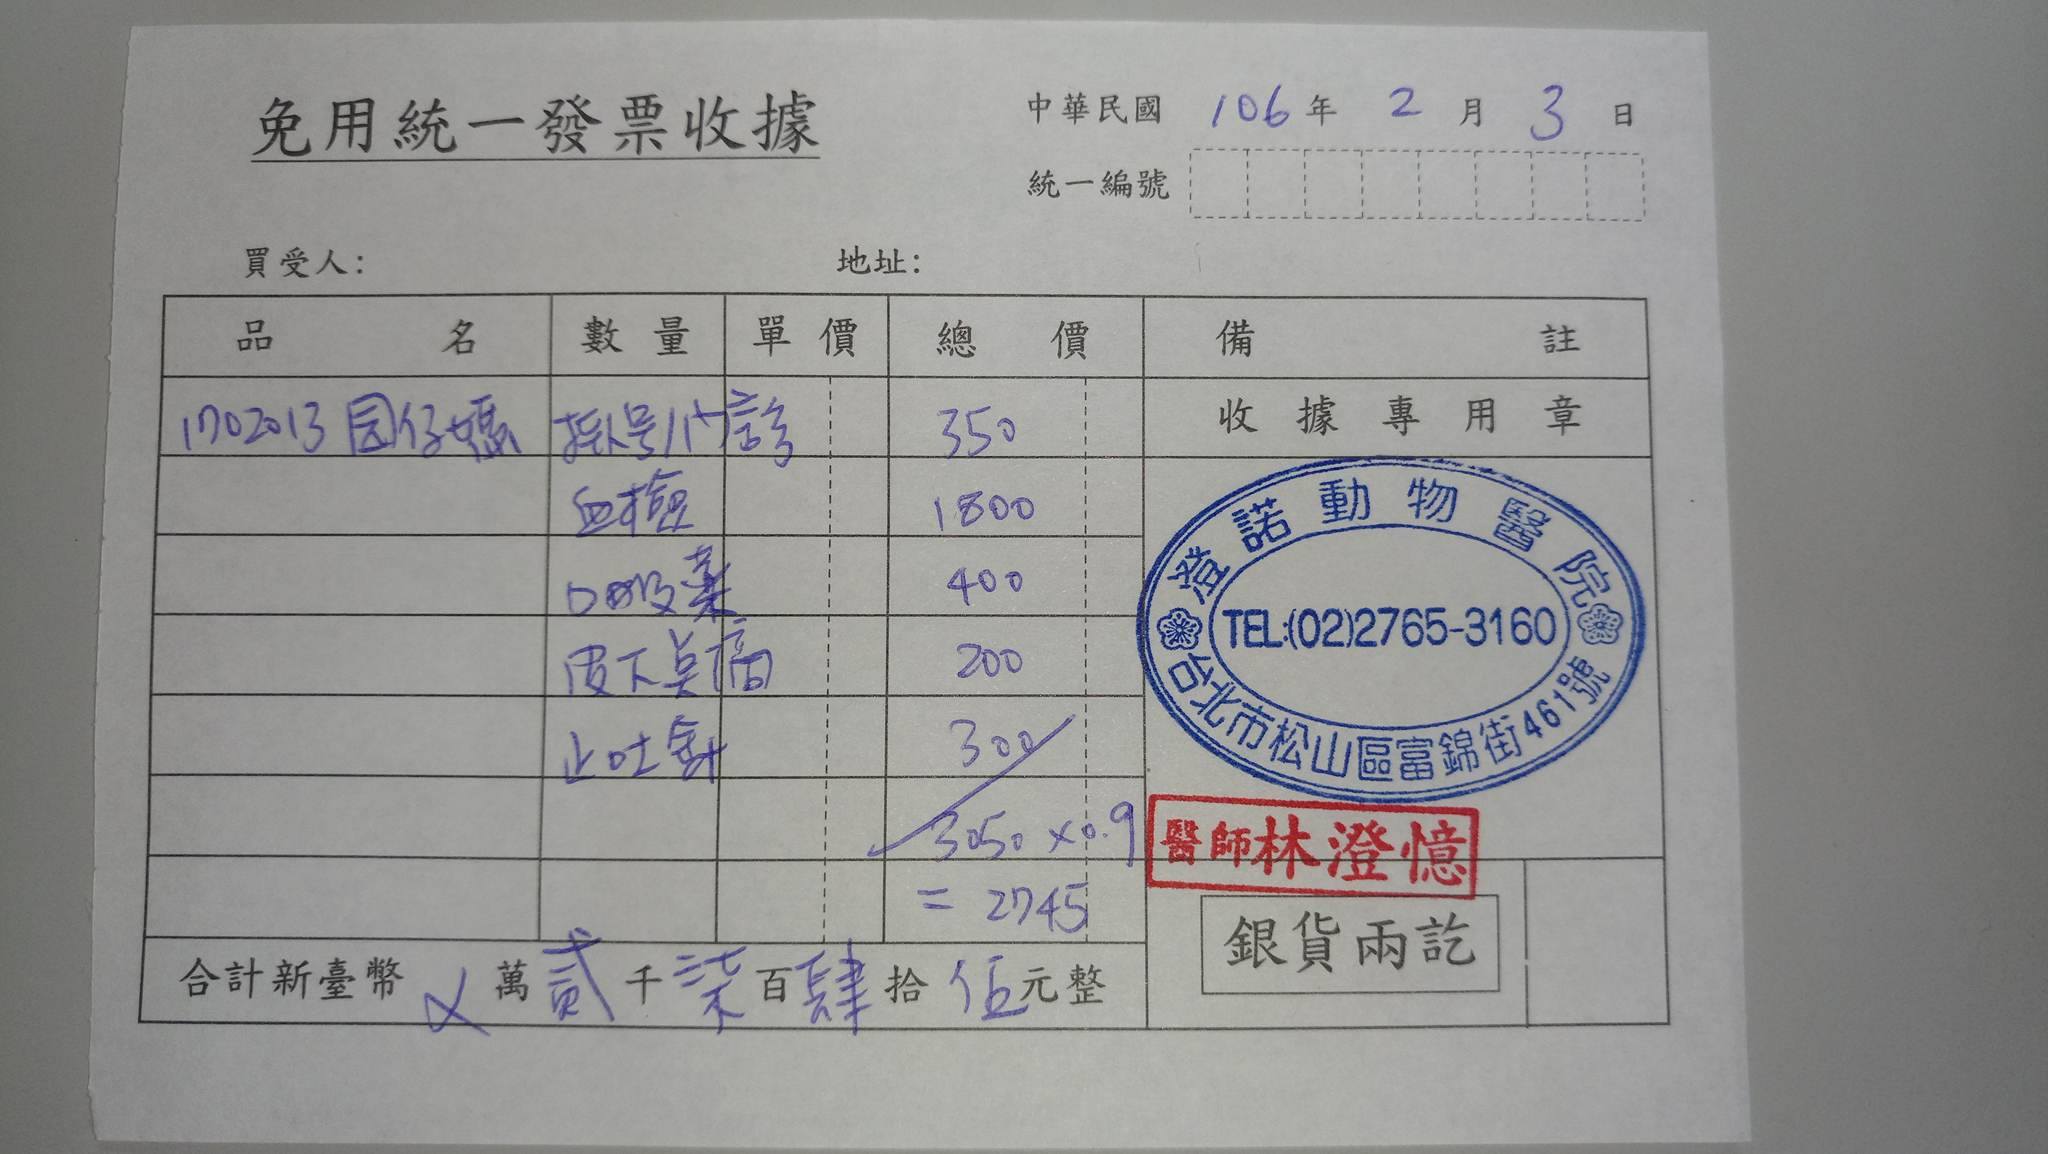 免用統一發票收據
中華民國 106 年 2 月 3 日
統一編號
買受人: 地址:
品名 數量 單價 總價 備註
1702013 园仔媽 掛号/门診 350 收據專用章
血檢 1800
口服薬 400
皮下点滴 200
止吐針 300
3050 x0.9
= 2745
合計新臺幣 X 萬 貳 千 柒 百 肆 拾 伍 元整
澄諾動物醫院
TEL:(02)2765-3160
台北市松山區富錦街461號
醫師林澄憶
銀貨兩訖